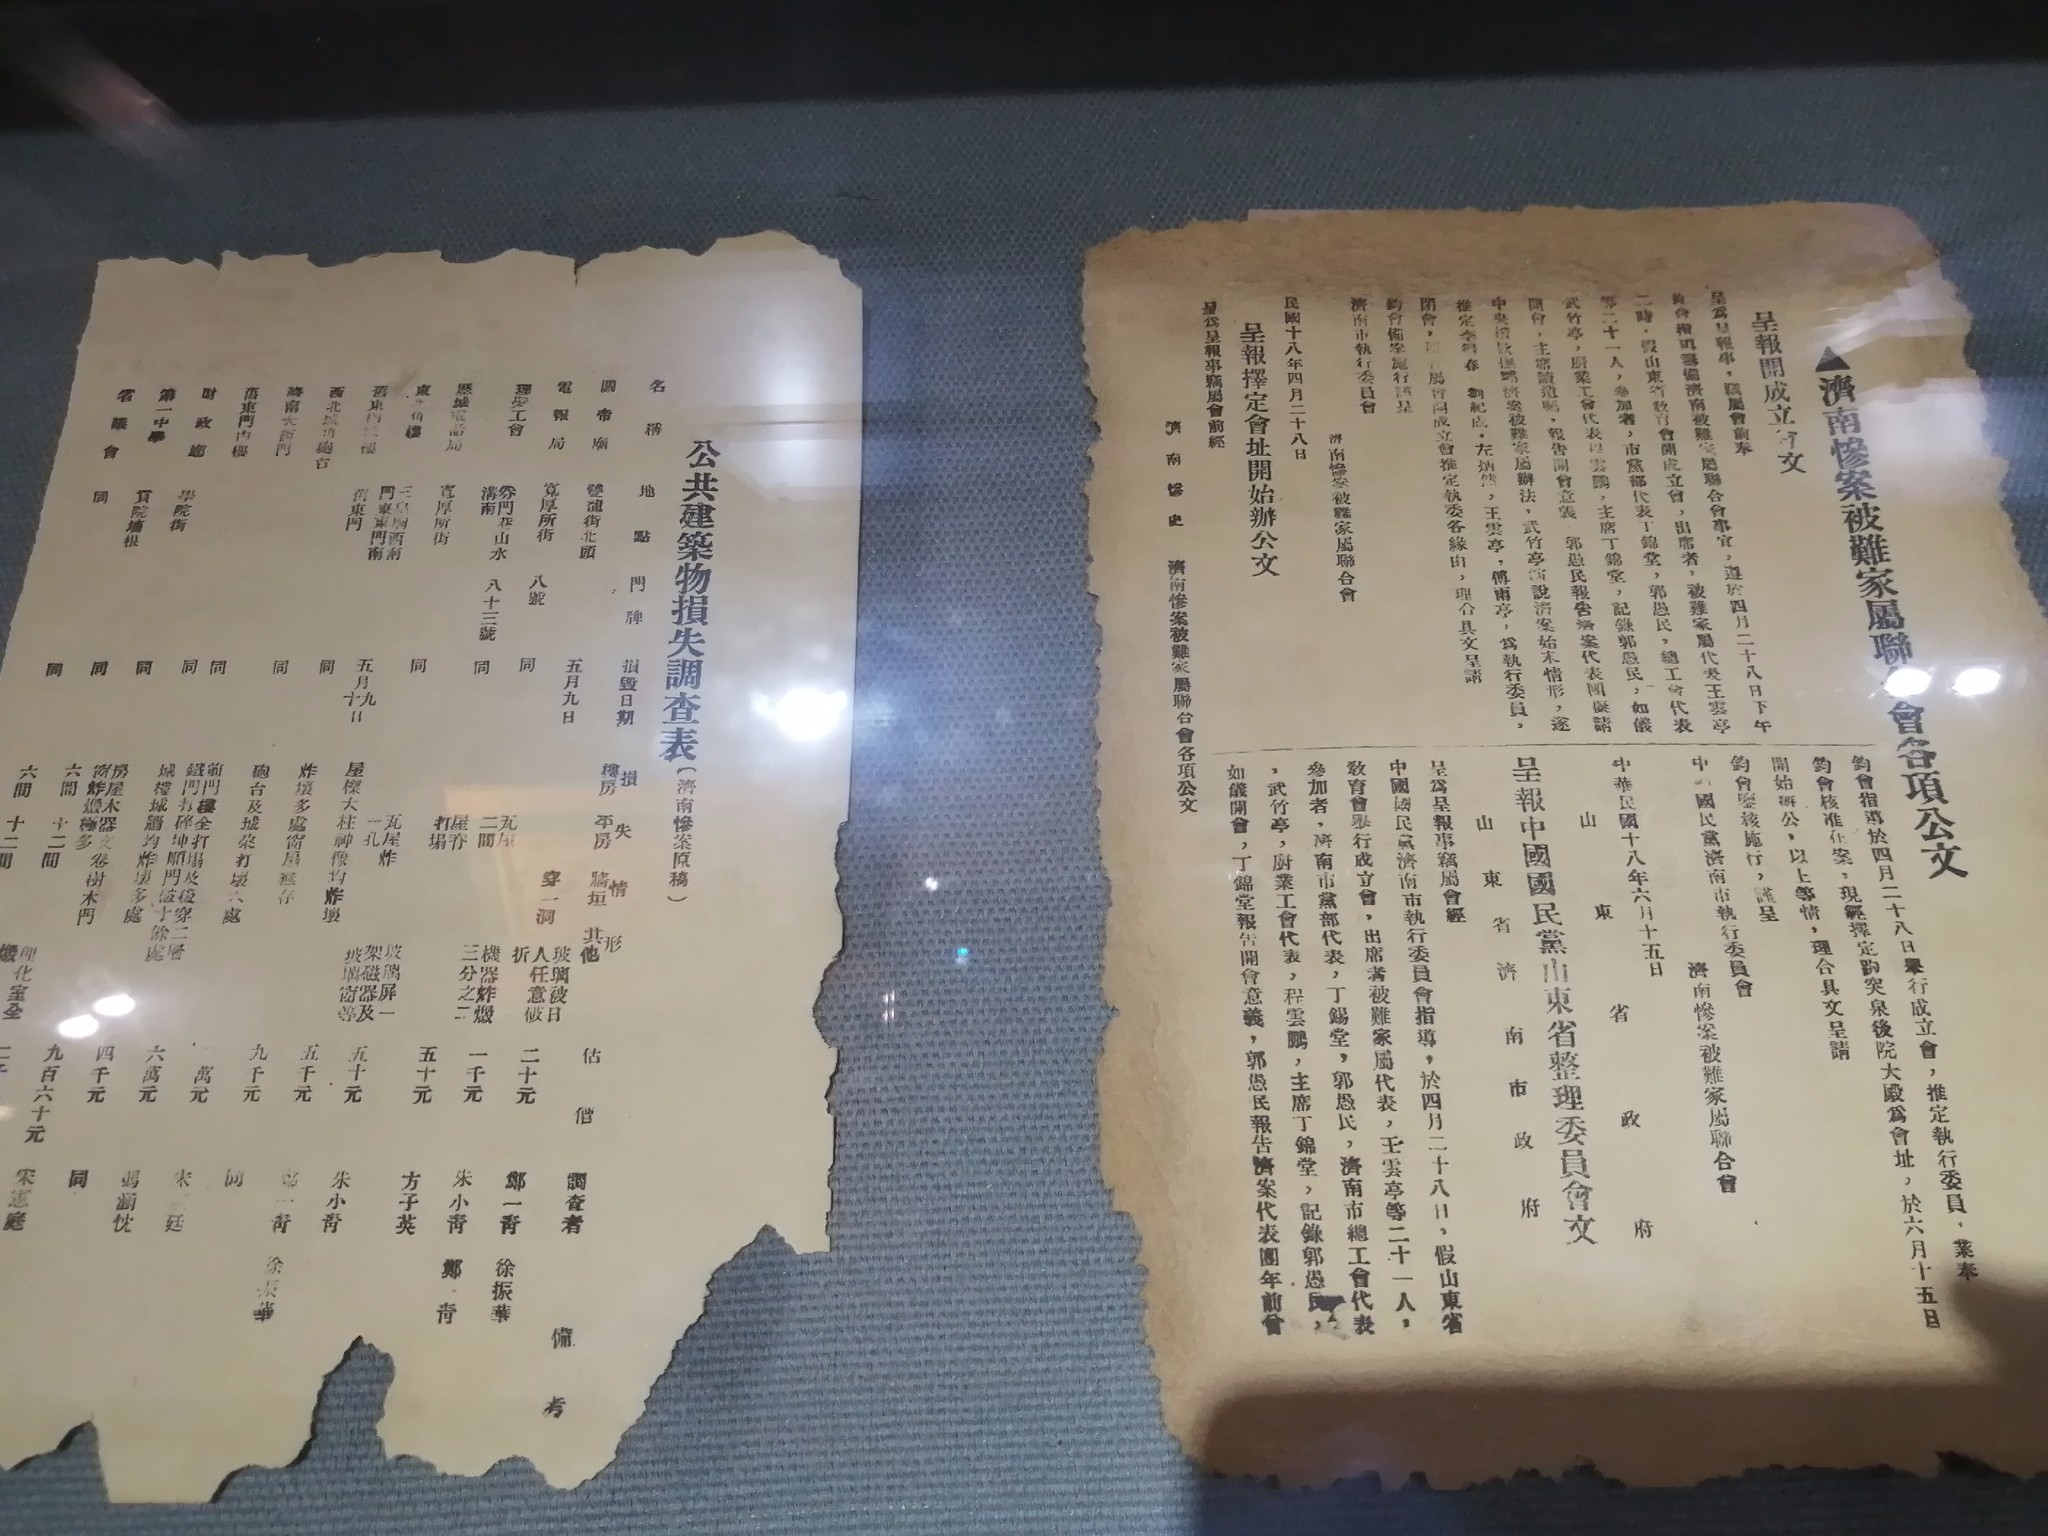 ▲濟南慘案被難家屬聯會各項公文
呈報開成立會文
呈爲呈報事，竊屬會前奉
鈞會指導籌備濟南被難家屬聯合會事宜，遵於四月二十八日下午
二時，假山東省教育會開成立會，出席者，被難家屬代表王雲亭
等二十一人，參加者，市黨部代表丁錦堂，郭愚民，總工會代表
武竹亭，廚業工會代表程雲鵬，主席丁錦堂，記錄郭愚民，如儀
開會，主席讀遺囑，報告開會意義，郭愚民報告濟案代表團儗請
中央撥款撫卹濟案被難家屬辦法，武竹亭演說濟案始末情形，遂
推定李春，劉紀成，左炳然，王雲亭，傅雨亭，爲執行委員，
閉會，屬會開成立會推定執委各緣由，理合具文呈請
鈞會備案施行謹呈
濟南市執行委員會
濟南慘案被難家屬聯合會
民國十八年四月二十八日
呈報擇定會址開始辦公文
呈爲呈報事竊屬會前經
鈞會指導於四月二十八日舉行成立會，推定執行委員，業奉
鈞會核准在案，現經擇定趵突泉後院大殿爲會址，於六月十五日
開始辦公，以上等情，理合具文呈請
鈞會鑒核施行，謹呈
中國國民黨濟南市執行委員會
濟南慘案被難家屬聯合會
中華民國十八年六月十五日
山東省政府
呈報中國國民黨山東省整理委員會文
山東省濟南市政府
呈爲呈報事竊屬會經
中國國民黨濟南市執行委員會指導，於四月二十八日，假山東省
教育會舉行成立會，出席者被難家屬代表，王雲亭等二十一人，
參加者，濟南市黨部代表，丁錫堂，郭愚民，濟南市總工會代表
，武竹亭，廚業工會代表，程雲鵬，主席丁錦堂，記錄郭愚民，
如儀開會，丁錦堂報告開會意義，郭愚民報告濟案代表團年前會
濟南慘史 濟南慘案被難家屬聯合會各項公文
公共建築物損失調查表（濟南慘案原稿）
名稱 地點 門牌 損毀日期 損失情形 樓房 平房 牆垣 其他 估價 調查者 備考
關帝廟 雙龍街北頭 五月九日 穿一洞 玻璃被日人任意破折 二十元 鄭一青 徐振華
電報局 寬厚所街 八號 同 瓦屋二間 機器炸燬三分之二 一千元 朱小青 鄭一青
理髮工會 芬門巷山水溝南 八十三號 同 屋脊打塌 五十元 方子英
歷城電話局 寬厚所街 同 瓦屋炸一孔 玻璃屏一架磁器及玻璃窗等 五十元 朱小青
三皇廟西南門東東門南 五月九十日 屋樑大柱神像均炸壞 五千元 鄭一青 徐振華
舊東門 同 炸壞多處窗扇無存 九千元 同
西北城角砲台 同 砲台及城垛打壞六處 一萬元
濟南大西門 同 六萬元 馮涵忱
舊東門內樓 同 城樓城牆均炸壞多處 四千元 同
財政廳 學院街 同 房屋木器文卷樹木門窗炸燬極多
第一中學 貢院墻根 同 六間 十二間 九百六十元 宋憲庭
省議會 同 同 六間 十二間 理化室全燬